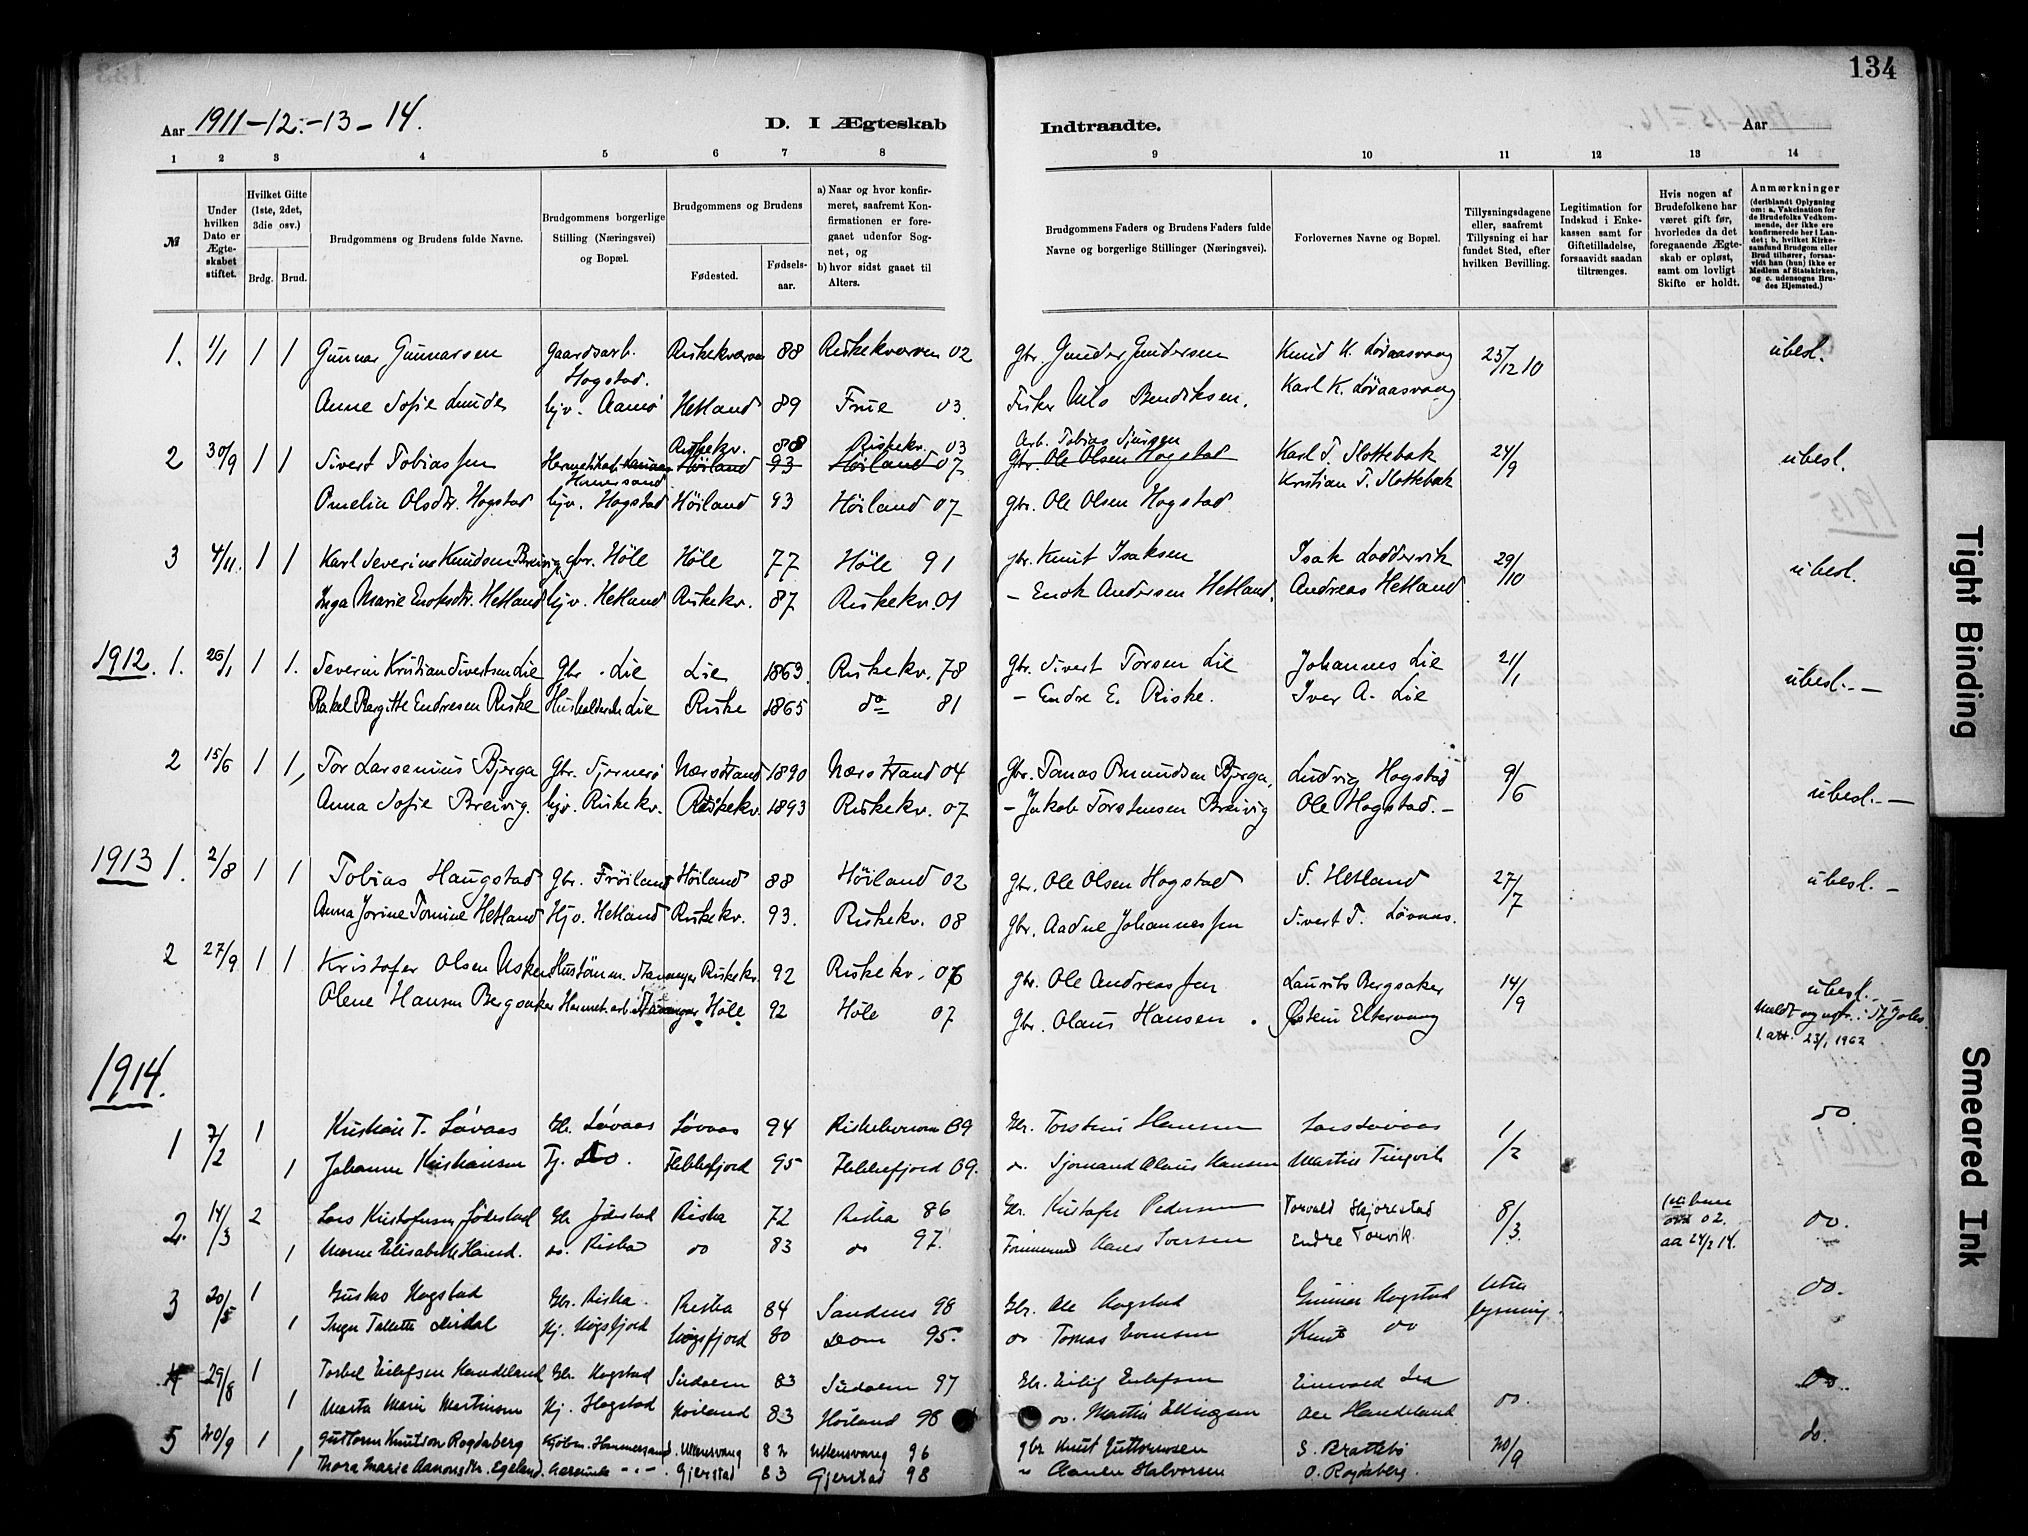 134
Aar 1911-12.-13-14. D. I Ægteskab Indtraadte. Aar
1 2 3 4 5 6 7 8 9 10 11 12 13 14
№
Under hvilken Dato er Ægteskabet stiftet.
Hvilket Gifte (1ste, 2det, 3die osv.)
Brdg. Brud.
Brudgommens og Brudens fulde Navne.
Brudgommens borgerlige Stilling (Næringsvei) og Bopæl.
Brudgommens og Brudens
Fødested. Fødselsaar.
a) Naar og hvor konfirmeret, saafremt Konfirmationen er foregaaet udenfor Sognet, og
b) hvor sidst gaaet til Alters.
Brudgommens Faders og Brudens Faders fulde Navne og borgerlige Stillinger (Næringsvei).
Forlovernes Navne og Bopæl.
Tillysningsdagene eller, saafremt Tillysning ei har fundet Sted, efter hvilken Bevilling.
Legitimation for Indskud i Enkekassen samt for Giftetilladelse, forsaavidt saadan tiltrænges.
Hvis nogen af Brudefolkene har været gift før, hvorledes da det foregaaende Ægteskab er opløst, samt om lovligt Skifte er holdt.
Anmærkninger (deriblandt Oplysning om: a. Vakcination for de Brudefolks Vedkommende, der ikke ere konfirmerede her i Landet; b. hvilket Kirkesamfund Brudgom eller Brud tilhører, forsaavidt han (hun) ikke er Medlem af Statskirken, og c. udensogns Brudes Hjemsted.)
1. 1/1 1 1 Gunnar Gunnarsen Gaardsarb. Hogstad. Riskekværven 88 Riskekværven 02 Gbr. Gunder Gundersen Knud K. Løvaasvaag 25/12 10 ubesl.
Anne Sofie Lunde hjv. Aamø Hetland 89 Frue 03. Fisker Nils Bendiksen. Karl K. Løvaasvaag
2 30/9 1 1 Sivert Tobiassen Hermetikab. Hommersand Riskekv. 88 Riskekv. 03 Arb. Tobias Karl T. Slottebak 24/9 ubesl.
Høiland 93 Høiland 07 Gbr. Ole Olsen Hogstad
Omelia Olsdtr. Hogstad hjv. Hogstad Høiland 93 Høiland 07 gbr. Ole Olsen Hogstad Kristian T. Slottebak
3 4/11. 1 1 Karl Severin Knudsen Breivig gbr. Höle Höle 77 Höle 91 gbr. Knut Isaksen Isak Loddervik 29/10 ubesl.
Inga Marie Enoksdtr. Hetland hjv. Hetland Riskekv. 87 Riskekv. 01 - Enok Andersen Hetland. Andreas Hetland
1912. 1. 26/1 1 1. Severin Kristian Sivertsen Lie Gbr. Lie Lie 1863. Riskekv. 78 Gbr. Sivert Torsen Lie Johannes Lie 21/1 ubesl. -
Rakel Bergitte Endresen Riske Husholderske Lie Riske 1865 do 81 - Endre E. Riske. Iver A. Lie
2 15/6 1 1 Tor Larsenius Bjerga Gbr. Sjernerø Nærstrand 1890 Nærstrand 04 Gbr. Tomas Bjerga, Ludvig Hogstad 9/6 ubesl. -
Anna Sofie Breivig. hjv. Riskekv. Riskekv. 1893 Riskekv. 07 - Jakob Torstensen Breivig Ole Hogstad. -
1913 1. 2/8 1 1 Tobias Haugstad Gbr. Frøiland Høiland 88 Høiland 02 gbr. Ole Olsen Hogstad S. Hetland 27/7 ubesl. -
Anna Jorine Tomine Hetland Hjv. Hetland Riskekv. 93. Riskekv. 08 gbr. Aadne Johannessen Sivert T. Løvaas.
2 27/9 1 1 Kristofer Olsen Usken Stavanger Riskekv. 92 Riskekv. 06 gbr. Ole Andreassen Laurits Bergsaker 14/9 ubesl.
Olene Hansen Bergsaker Hermet. arb. Stavanger Höle 92 Höle 07 gbr. Olaus Hansen. Østein Eltervaag
23/1 1962
1914.
1 7/2 1 Kristian T. Løvaas Gbr. Løvaas Løvaas 94 Riskekværven 09 Gbr. Torstein Hansen Lars Løvaas 1/2 do.
1 Johanne Kristiansen Tj. do. Flekkefjord 95 Flekkefjord 09. do. Sjømand Olaus Hansen Martin Tingvik
2. 14/3 2 Lars Kristofersen Jødestad Gbr. Jødestad Riska 72 Riska 86 Gbr. Kristofer Pedersen Torvald Skjørestad 8/3. 02. do.
1 Elisabeth do. Riska do 83 do 97. Hans Iversen Endre Torvik. 24/2 14.
3 20/5 1 Hogstad Gbr. Riska. Riska 84 Sandnes 98 Gbr. Ole Hogstad Gunnar Hogstad Uten lysning. do.
1 Inger Dirdal Hj. Høgsfjord Høgsfjord 80 Dom 95. do Tomas Knut do
4 29/8 1 Torkel Eilefsen Handeland Gbr. Hogstad Sirdalen 83 Sirdalen 97 Gbr. Eilif Eilefsen do. do.
1 Marta Marie Martinsen Hj. Hogstad Høiland 83 Høiland 98 do. Martin Ellingsen Ole Handeland
5 20/9 1 Guttorm Knutson Rogdaberg Kjøbm. Hommersand. Ullensvang 82 Ullensvang 96 gbr Knut Guttormsen S. Brattebø 20/9 do.
1 Thora Marie Aanonsdtr. Egeland. Gjerstad 83 Gjerstad 98 " Aanen Halvorsen O. Rogdaberg.
Tight Binding
Smeared Ink